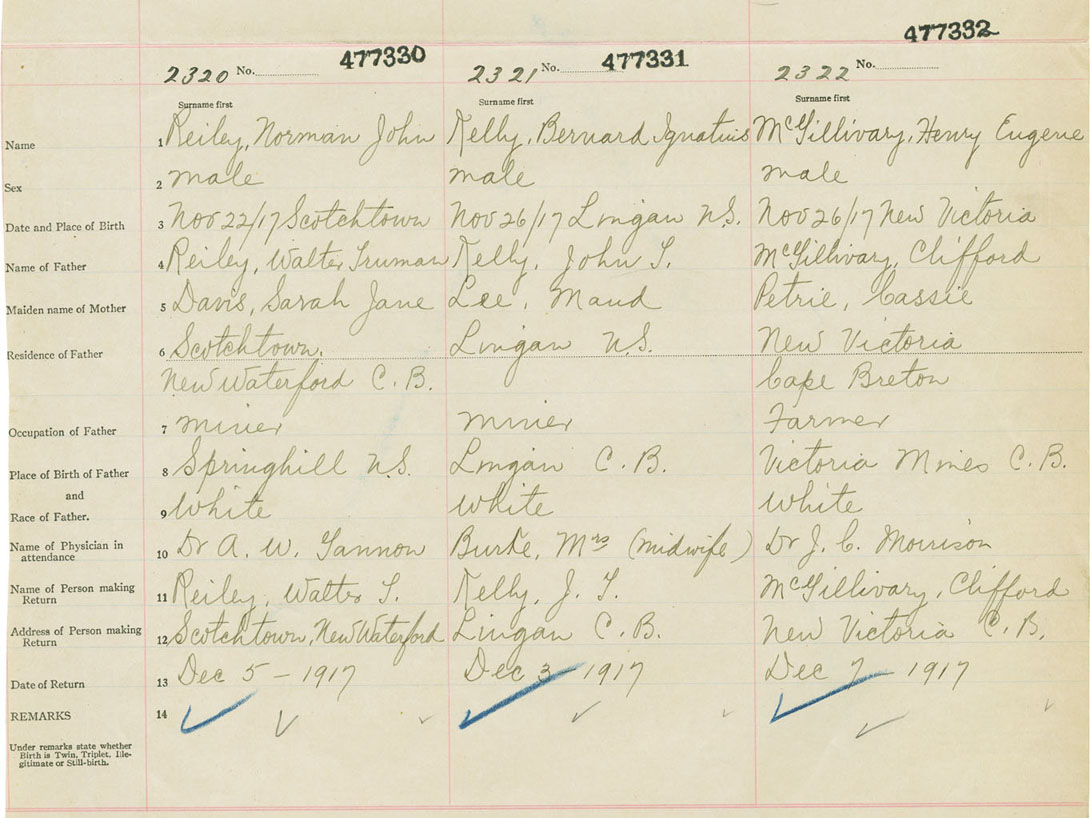 2320 No. 477330 2321 No. 477331 2322 No. 477332
Surname first Surname first Surname first
Name 1 Reiley, Norman John Kelly, Bernard Ignatius McGillivary, Henry Eugene
Sex 2 male male male
Date and Place of Birth 3 Nov 22/17 Scotchtown Nov 26/17 Lingan N.S. Nov 26/17 New Victoria
Name of Father 4 Reiley, Walter Truman Kelly, John T. McGillivary, Clifford
Maiden name of Mother 5 Davis, Sarah Jane Lee, Maud Petrie, Cassie
Residence of Father 6 Scotchtown. Lingan N.S. New Victoria
New Waterford C.B. Cape Breton
Occupation of Father 7 miner miner Farmer
Place of Birth of Father 8 Springhill N.S. Lingan C.B. Victoria Mines C.B.
and
Race of Father. 9 White White White
Name of Physician in attendance 10 Dr A. W. Gannon Burke, Mrs (midwife) Dr J. C. Morrison
Name of Person making Return 11 Reiley, Walter T. Kelly, J. T. McGillivary, Clifford
Address of Person making Return 12 Scotchtown, New Waterford Lingan C.B. New Victoria C.B.
Date of Return 13 Dec 5 - 1917 Dec 3 - 1917 Dec 7 - 1917
REMARKS 14
Under remarks state whether
Birth is Twin, Triplet, Ille-
gitimate or Still-birth.